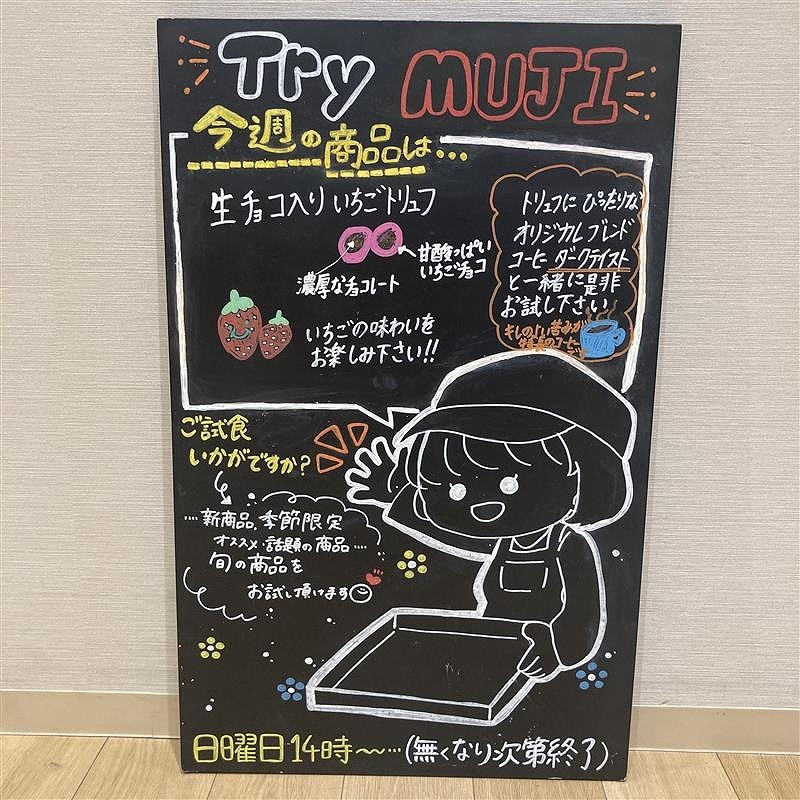 Try MUJI
今週の商品は…
生チョコ入りいちごトリュフ
甘酸っぱい
いちごチョコ
濃厚なチョコレート
いちごの味わいを
お楽しみ下さい!!
トリュフに ぴったりな
オリジカル ブレンド
コーヒー ダークテイスト
と一緒に是非
お試し下さい
キレのよい苦みが
特長のコーヒー
です
ご試食
いかがですか?
…新商品、季節限定
オススメ・話題の商品……
旬の商品を
お試し頂けます
日曜日14時〜…(無くなり次第終了)